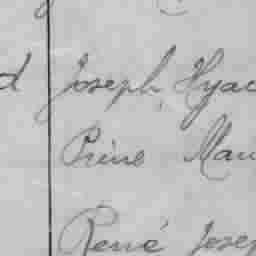 d Joseph Hyac
Prine Mau
René Josep